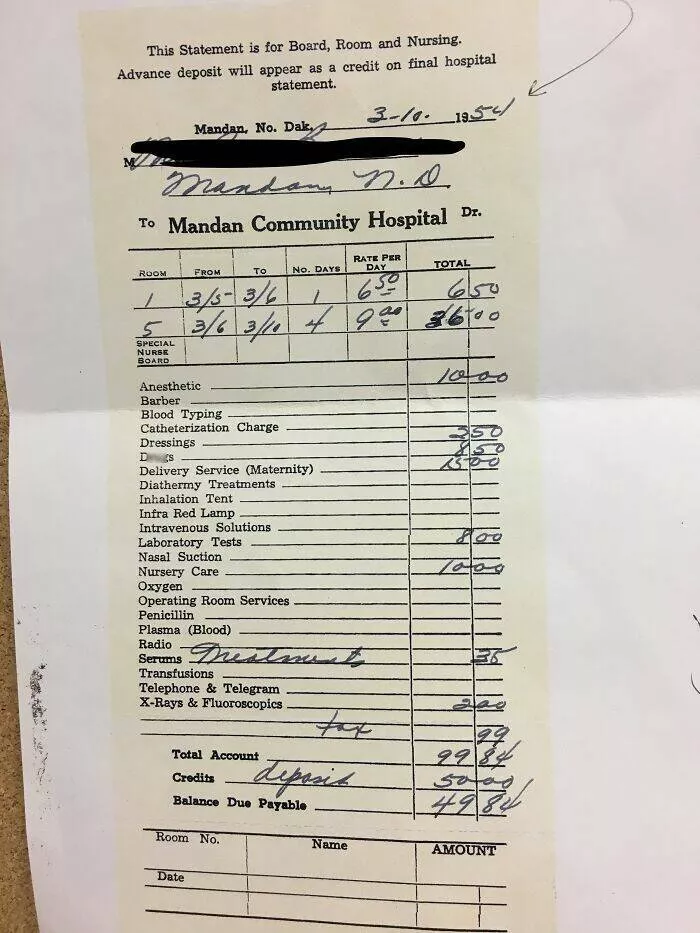 This Statement is for Board, Room and Nursing.
Advance deposit will appear as a credit on final hospital
statement.
Mandan, No. Dak. 3-10. 1954
M
Mandan, N.D.
To Mandan Community Hospital Dr.
ROOM FROM TO NO. DAYS RATE PER DAY TOTAL
1 3/5 3/6 1 6 50 6 50
5 3/6 3/10 4 9 00 36 00
SPECIAL
NURSE
BOARD
Anesthetic 10 00
Barber
Blood Typing
Catheterization Charge
Dressings 2 50
D gs 8 50
Delivery Service (Maternity) 15 00
Diathermy Treatments
Inhalation Tent
Infra Red Lamp
Intravenous Solutions
Laboratory Tests 8 00
Nasal Suction
Nursery Care 10 00
Oxygen
Operating Room Services
Penicillin
Plasma (Blood)
Radio
Serums 35
Transfusions
Telephone & Telegram
X-Rays & Fluoroscopics 2 00
tax 99
Total Account 99 84
Credits deposit 50 00
Balance Due Payable 49 84
Room No. Name AMOUNT
Date